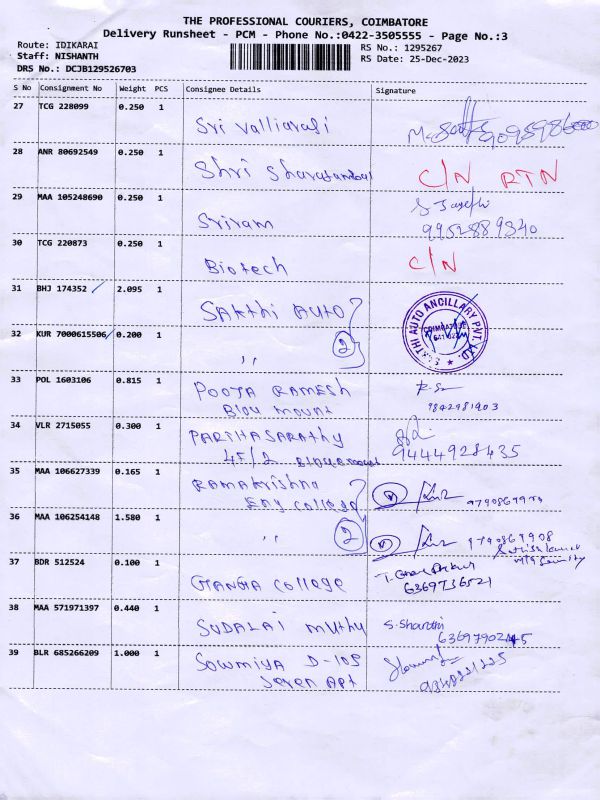 THE PROFESSIONAL COURIERS, COIMBATORE
Delivery Runsheet - PCM - Phone No.:0422-3505555 - Page No.:3
Route: IDIKARAI
RS No.: 1295267
Staff: NISHANTH
RS Date: 25-Dec-2023
DRS No.: DCJB129526703
S No Consignment No Weight PCS Consignee Details Signature
27 TCG 228099 0.250 1
Sri Valliarasi
28 ANR 80692549 0.250 1
Shri
C/N RTN
29 MAA 105248690 0.250 1
Sriram
9952889340
30 TCG 220873 0.250 1
Biotech
C/N
31 BHJ 174352 2.095 1
SAKthi AUTO
SAKTHI AUTO ANCILLARY PVT. LTD.
COIMBATORE
32 KUR 7000615506 0.200 1
,, 2
33 POL 1603106 0.815 1
POOJA RAMESH
Blou mount
9842981903
34 VLR 2715055 0.300 1
PARTHASARATHY
4F/2
9444928435
35 MAA 106627339 0.165 1
RAMAKrishna
Eng college
36 MAA 106254148 1.580 1
,, 2
9790869908
37 BDR 512524 0.100 1
GANGA college
6369736521
38 MAA 571971397 0.440 1
SUDALAI muthu
S. Sharathi
39 BLR 685266209 1.000 1
Sowmiya D-105
Seven Apt